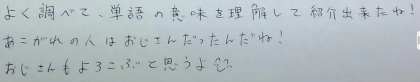 よく調べて、単語の意味を理解して紹介出来たね！
あこがれの人はおじさんだったんだね！
おじさんもよろこぶと思うよ